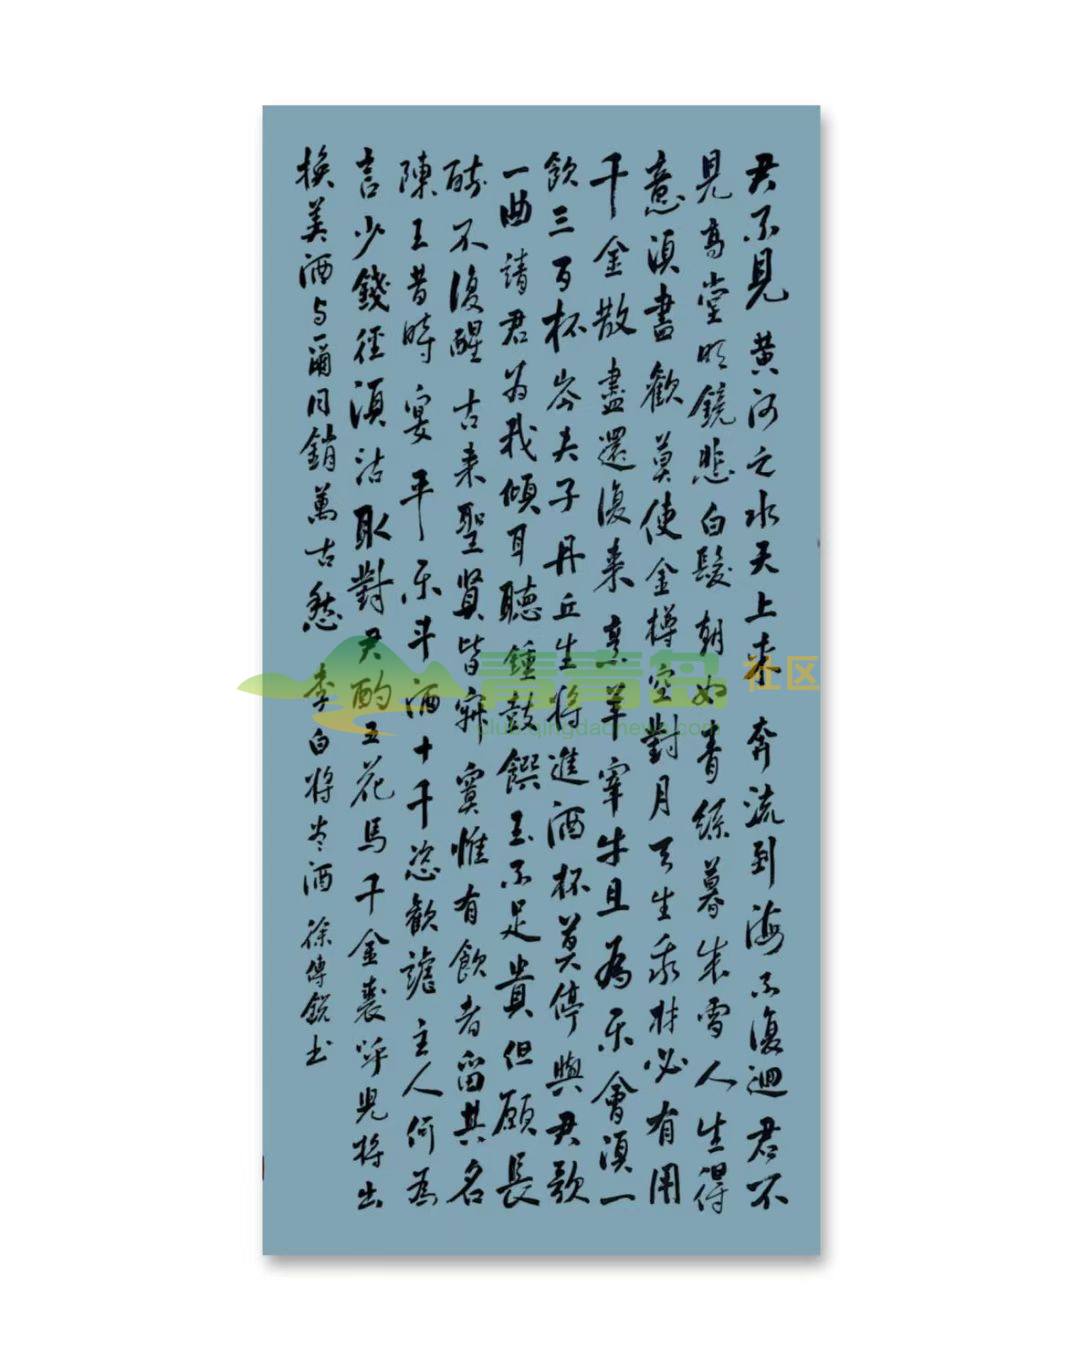 君不見黃河之水天上來奔流到海不復迴君不
見高堂明鏡悲白髮朝如青絲暮成雪人生得
意湏盡歡莫使金樽空對月天生我材必有用
千金散盡還復來烹羊宰牛且為樂會湏一
飲三百杯岑夫子丹丘生將進酒杯莫停與君歌
一曲請君为我傾耳聽鍾鼓饌玉不足貴但願長
醉不復醒古來聖賢皆寂寞惟有飲者留其名
陳王昔時宴平樂斗酒十千恣歡謔主人何為
言少錢徑湏沽取對君酌五花馬千金裘呼兒將出
換美酒与爾同銷萬古愁 李白將進酒 徐傳銳书
青青岛社区
club.qingdaonews.com